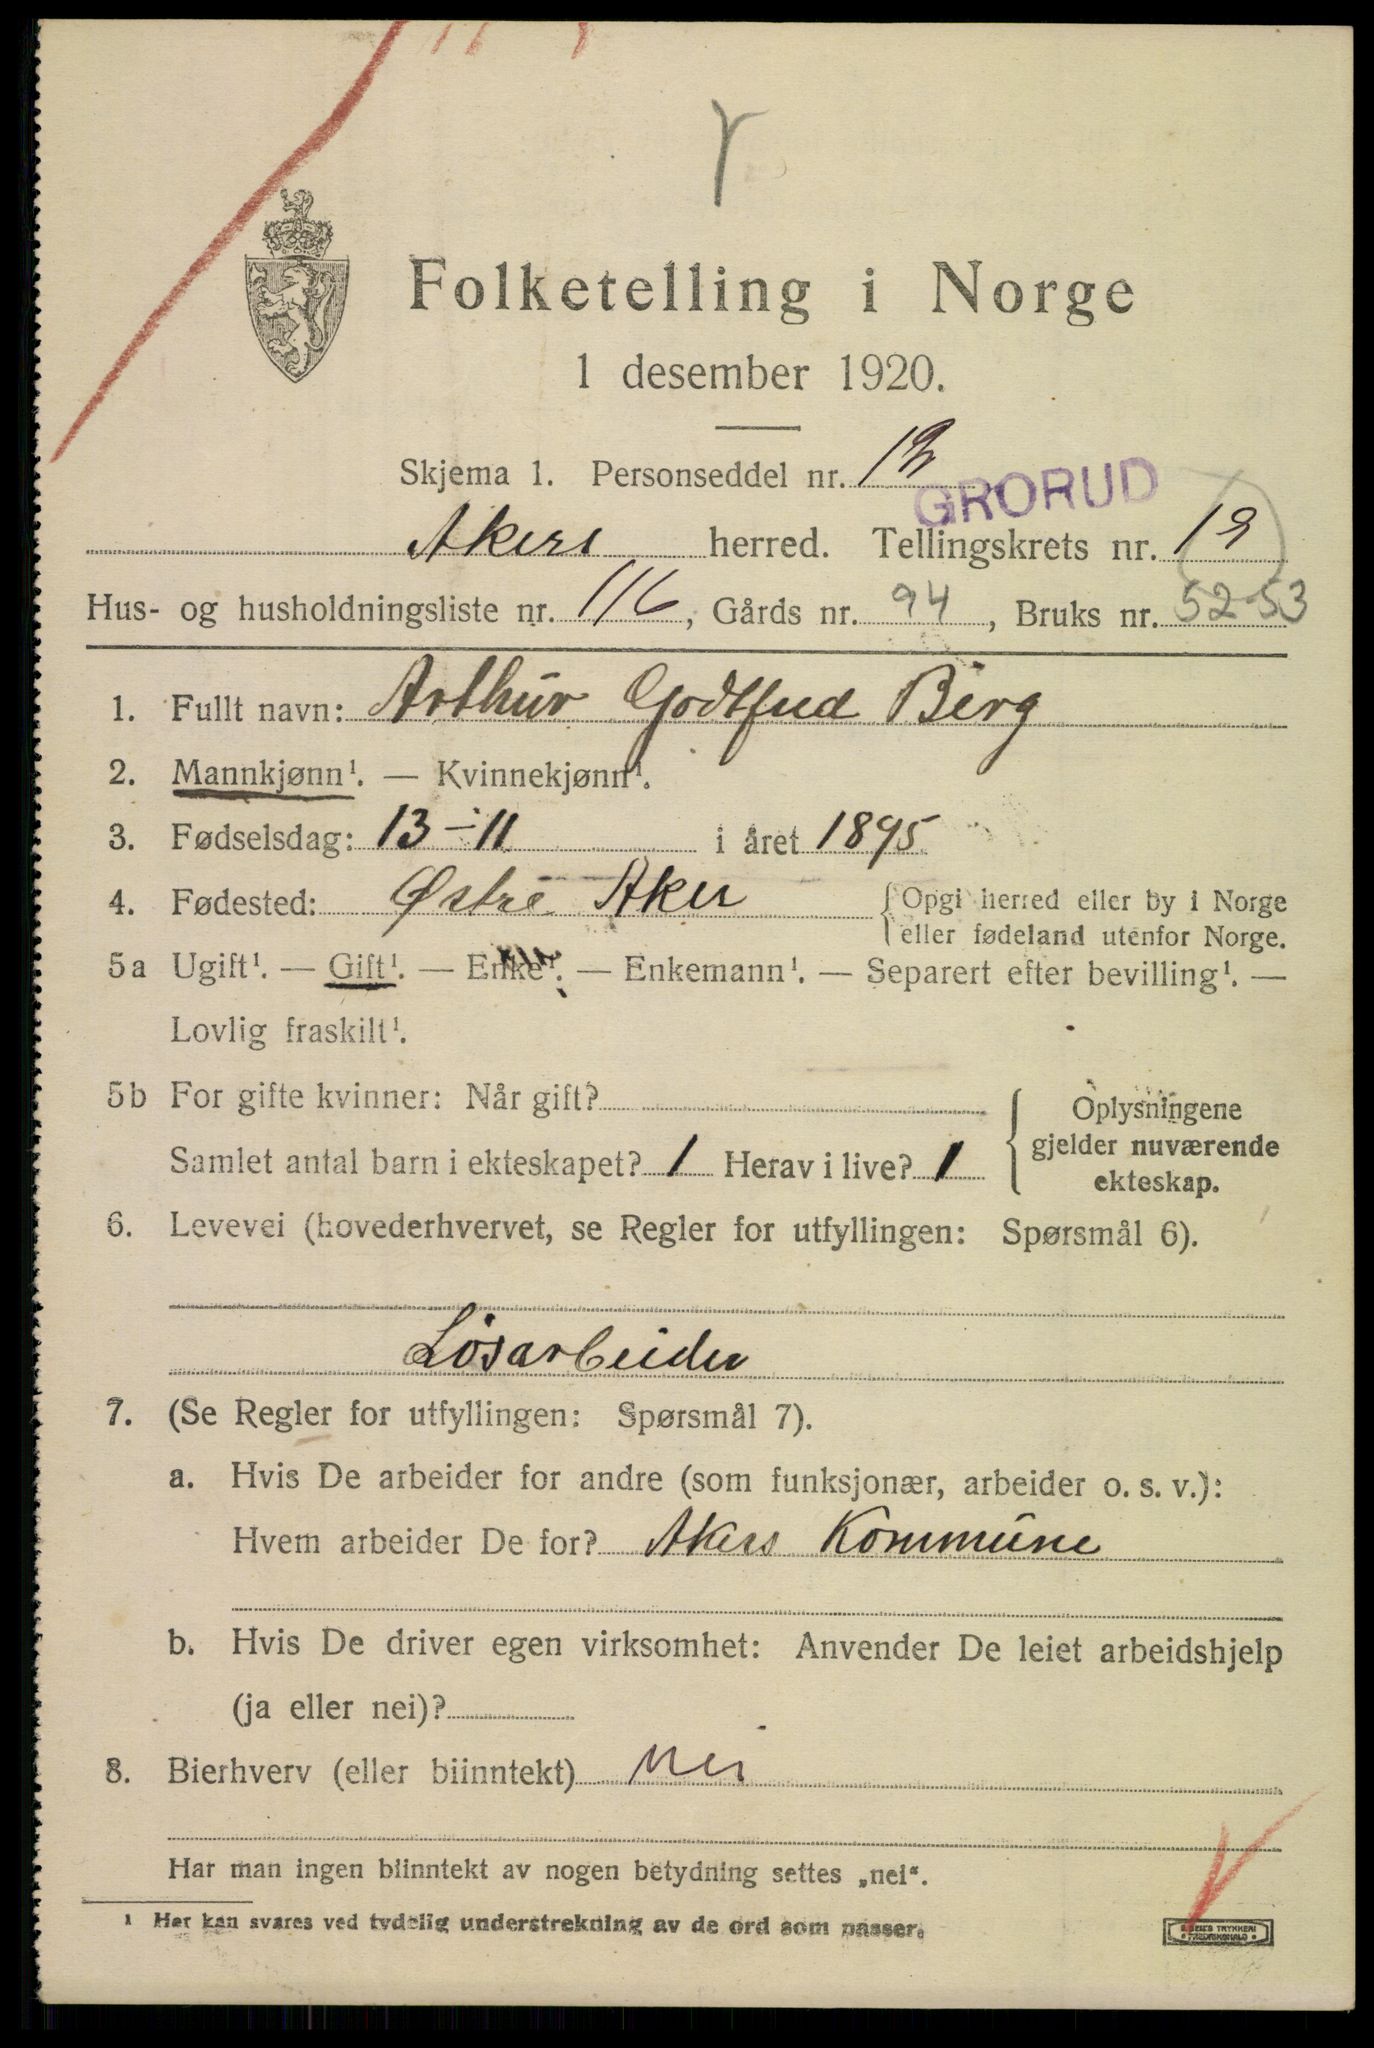 Folketelling i Norge
1 desember 1920.
Skjema 1. Personseddel nr.
GRORUD
Akers herred. Tellingskrets nr. 19
Hus- og husholdningsliste nr. 116, Gårds nr. 94, Bruks nr. 52-53
1. Fullt navn: Arthur Godtfred Berg
2. Mannkjønn¹. — Kvinnekjønn¹.
3. Fødselsdag: 13-11 i året 1895
4. Fødested: Østre Aker {Opgi herred eller by i Norge
eller fødeland utenfor Norge.
5a Ugift¹. — Gift¹. — Enke¹. — Enkemann¹. — Separert efter bevilling¹. —
Lovlig fraskilt¹.
5b For gifte kvinner: Når gift?
Samlet antal barn i ekteskapet? 1 Herav i live? 1
Oplysningene
gjelder nuværende
ekteskap.
6. Levevei (hovederhvervet, se Regler for utfyllingen: Spørsmål 6).
Løsarbeider
7. (Se Regler for utfyllingen: Spørsmål 7).
a. Hvis De arbeider for andre (som funksjonær, arbeider o. s. v.):
Hvem arbeider De for? Akers Kommune
b. Hvis De driver egen virksomhet: Anvender De leiet arbeidshjelp
(ja eller nei)?
8. Bierhverv (eller biinntekt) nei
Har man ingen biinntekt av nogen betydning settes „nei“.
¹ Her kan svares ved tydelig understrekning av de ord som passer.